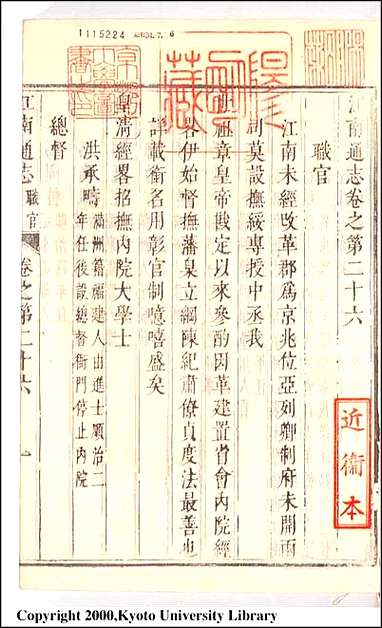 1115224
江南通志卷之第二十六
職官
江南未經改革郡爲京兆位亞列卿制府未開而
司莫設撫綏專授中丞我
世祖章皇帝戡定以來參酌因革建置省會内院經
畧伊始督撫藩臬立綱陳紀肅僚貞度法最善也
詳載銜名用彰官制噫嘻盛矣
皇清經畧招撫内院大學士
洪承疇 滿洲籍福建人由進士順治二
年任後設總督衙門停止内院
總督
江南通志 職官 卷之第二十六 一
近衞本
Copyright 2000,Kyoto University Library